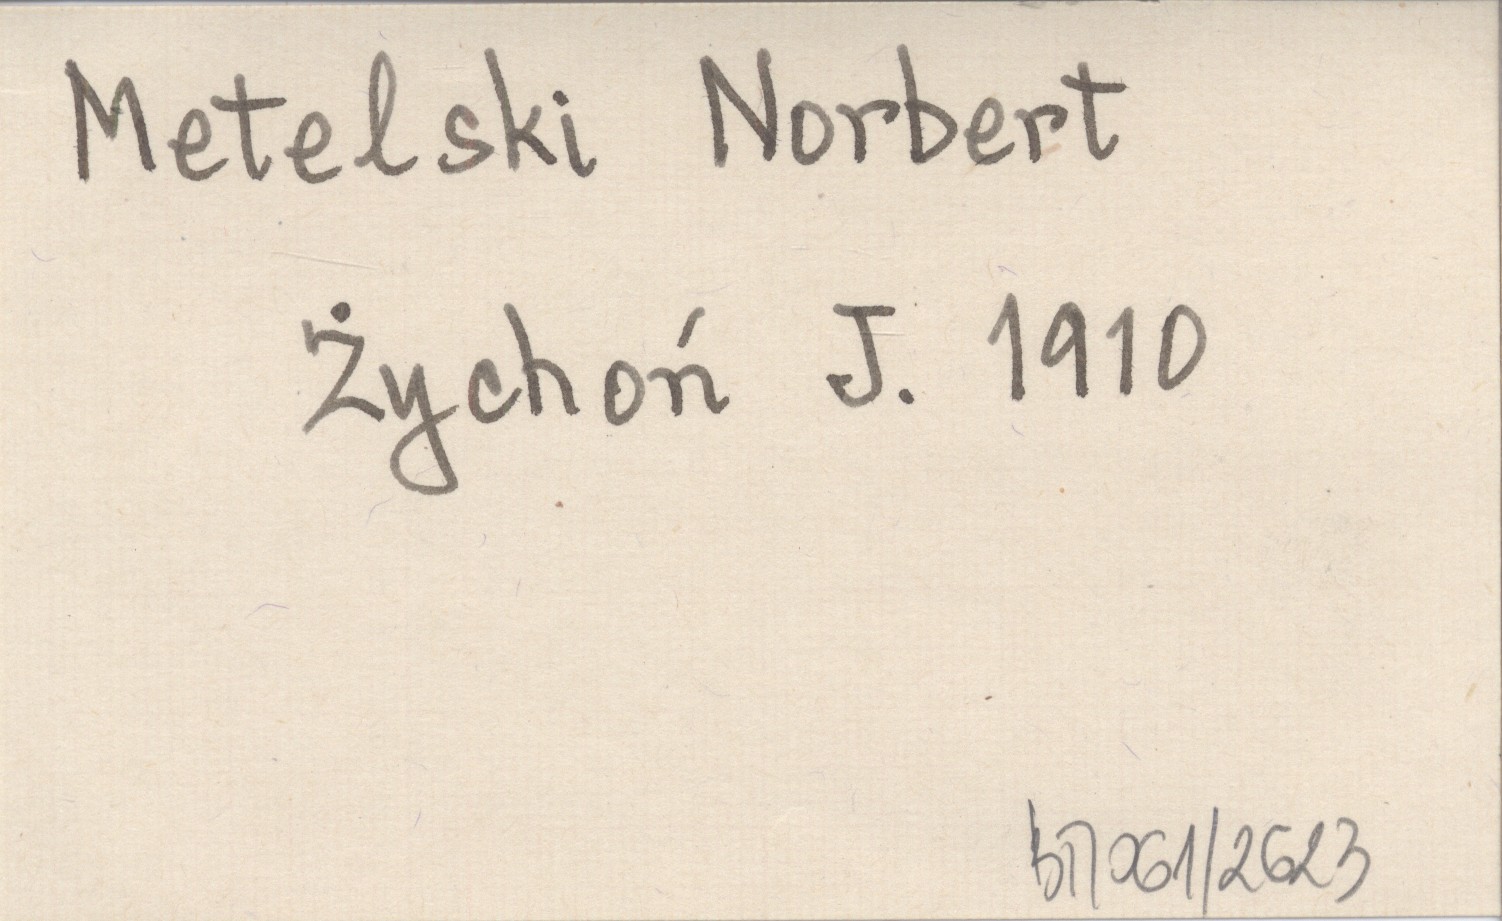 Metelski Norbert
Żychoń J. 1910
061/2623